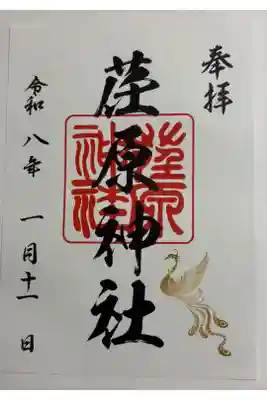 奉拝
荏原神社
荏原神社
令和八年 一月十一日